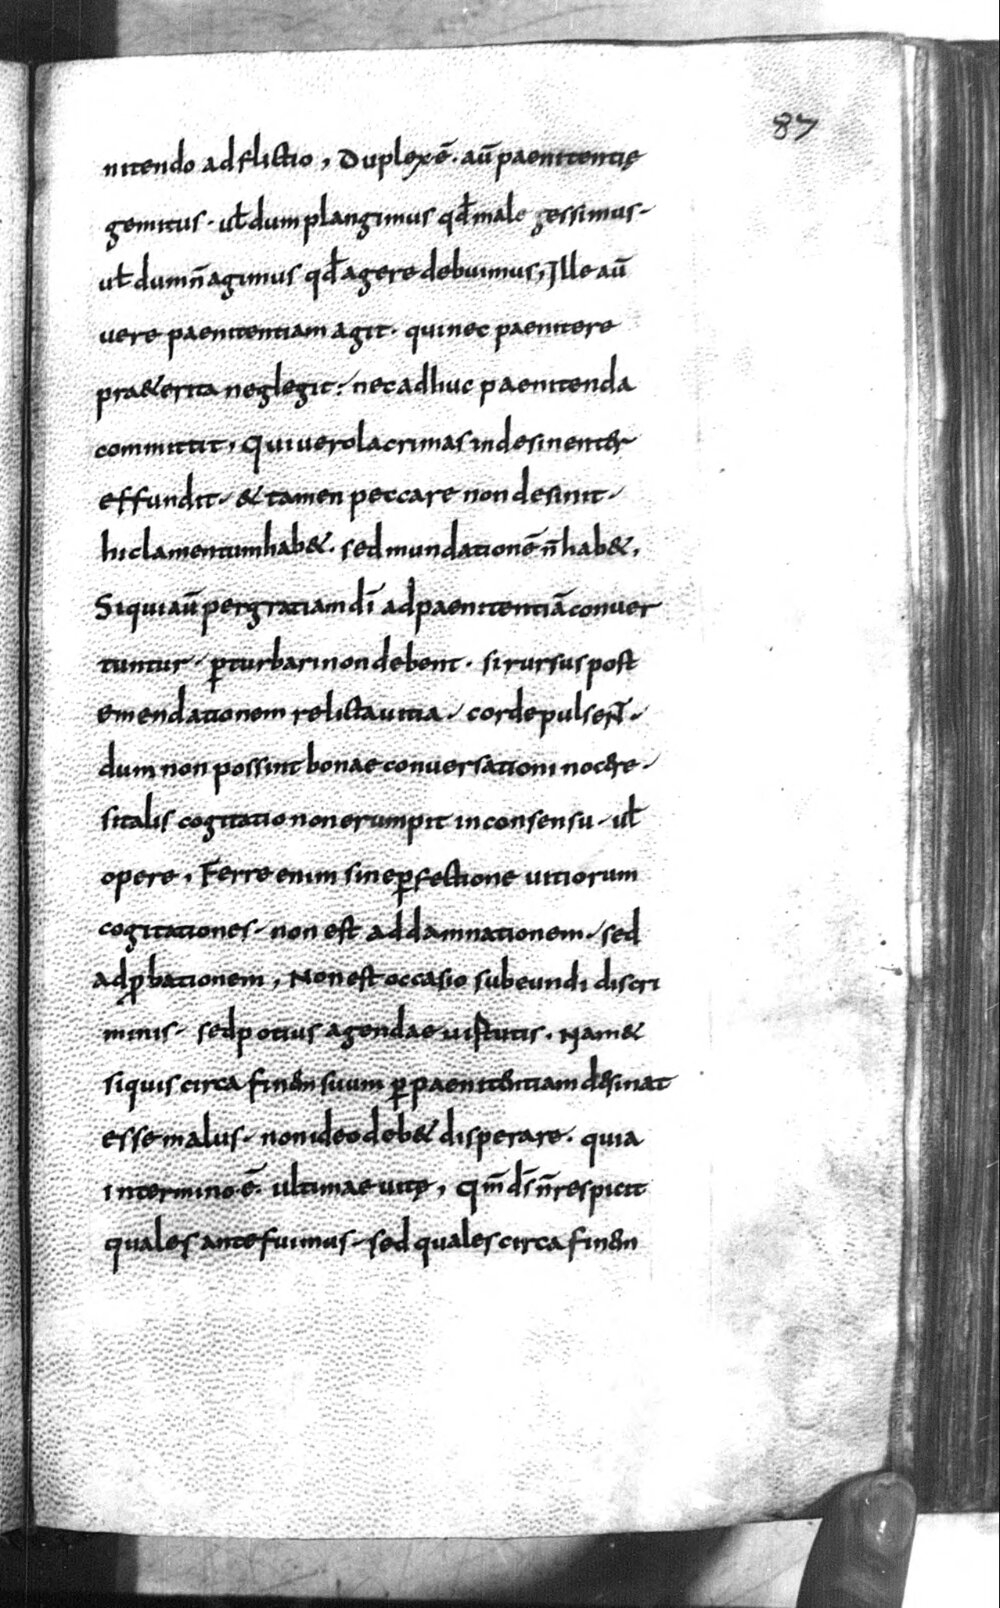 87
nitendo adflictio, Duplex ē. aū paenitentię
gemitus. uł dum plangimus qđ male gessimus.
uł dum n̄ agimus qđ agere debuimus, Ille aū
uere paenitentiam agit. qui nec paenitere
pra&erita neglegit. nec adhuc paenitenda
committit, Qui uero lacrimas indesinenter
effundit. & tamen peccare non desinit.
hic lamentum hab&. sed mundationē n̄ hab&,
Si qui aū per gratiam dī ad paenitentiā conuer
tuntur. ꝑturbari non debent. si rursus post
emendationem relicta uitia. corde pulseNt̄.
dum non possint bonae conuersationi nocere.
si talis cogitatio non erumpit in consensu. uł
opere, Ferre enim sine ꝑfectione uitiorum
cogitationes. non est ad damnationem. sed
ad ꝓbationem, Non est occasio subeundi discri
minis. sed potius agendae uirtutis. Nam &
si quis circa finem suum ꝑ paenitentiam desinat
esse malus. non ideo deb& disperare. quia
in termino ē. ultimae uitę, Qm̄ ds̄ n̄ respicit
quales ante fuimus. sed quales circa finem